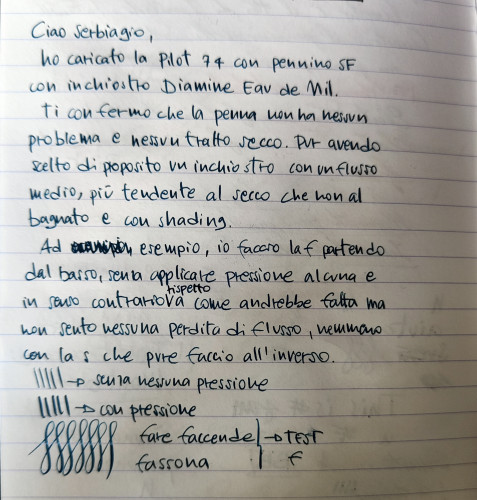 Ciao Serbiagio,
ho caricato la Pilot 74 con pennino SF
con inchiostro Diamine Eau de Nil.
Ti confermo che la penna non ha nessun
problema e nessun tratto secco. Pur avendo
scelto di poposito un inchiostro con un flusso
medio, più tendente al secco che non al
bagnato e con shading.
Ad esempio, io faccio la f partendo
dal basso, senza applicare pressione alcuna e
in senso contrario rispetto a come andrebbe fatta ma
non sento nessuna perdita di flusso, nemmeno
con la s che pure faccio all'inverso.
IIIII → senza nessuna pressione
IIIII → con pressione
fffffff fare faccende → TEST
fassona f